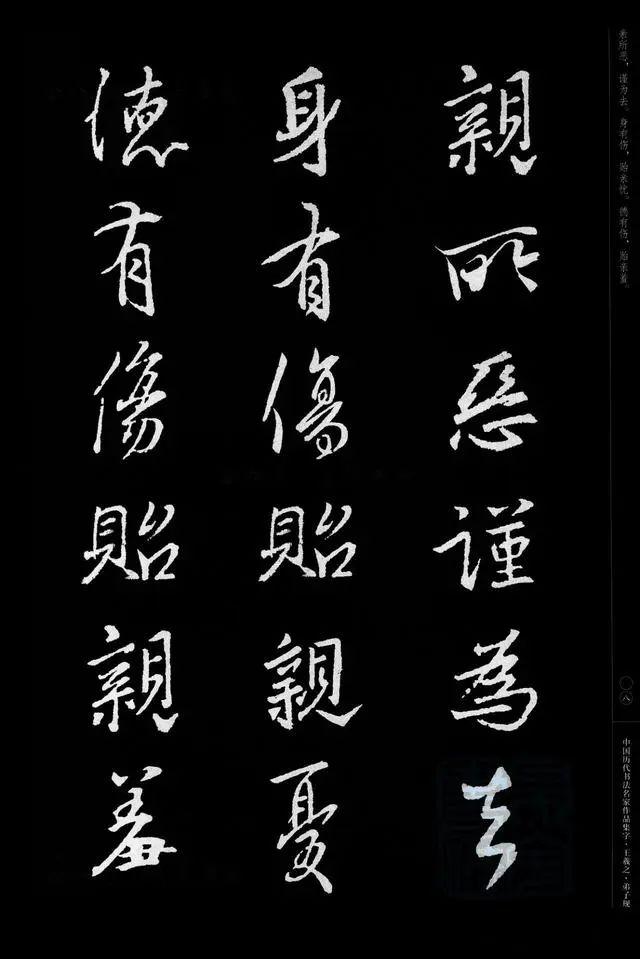 親所惡謹為去
身有傷貽親憂
德有傷貽親羞
亲所恶，谨为去。身有伤，贻亲忧。德有伤，贻亲羞。
〇八
中国历代书法名家作品集字·王羲之·弟子规